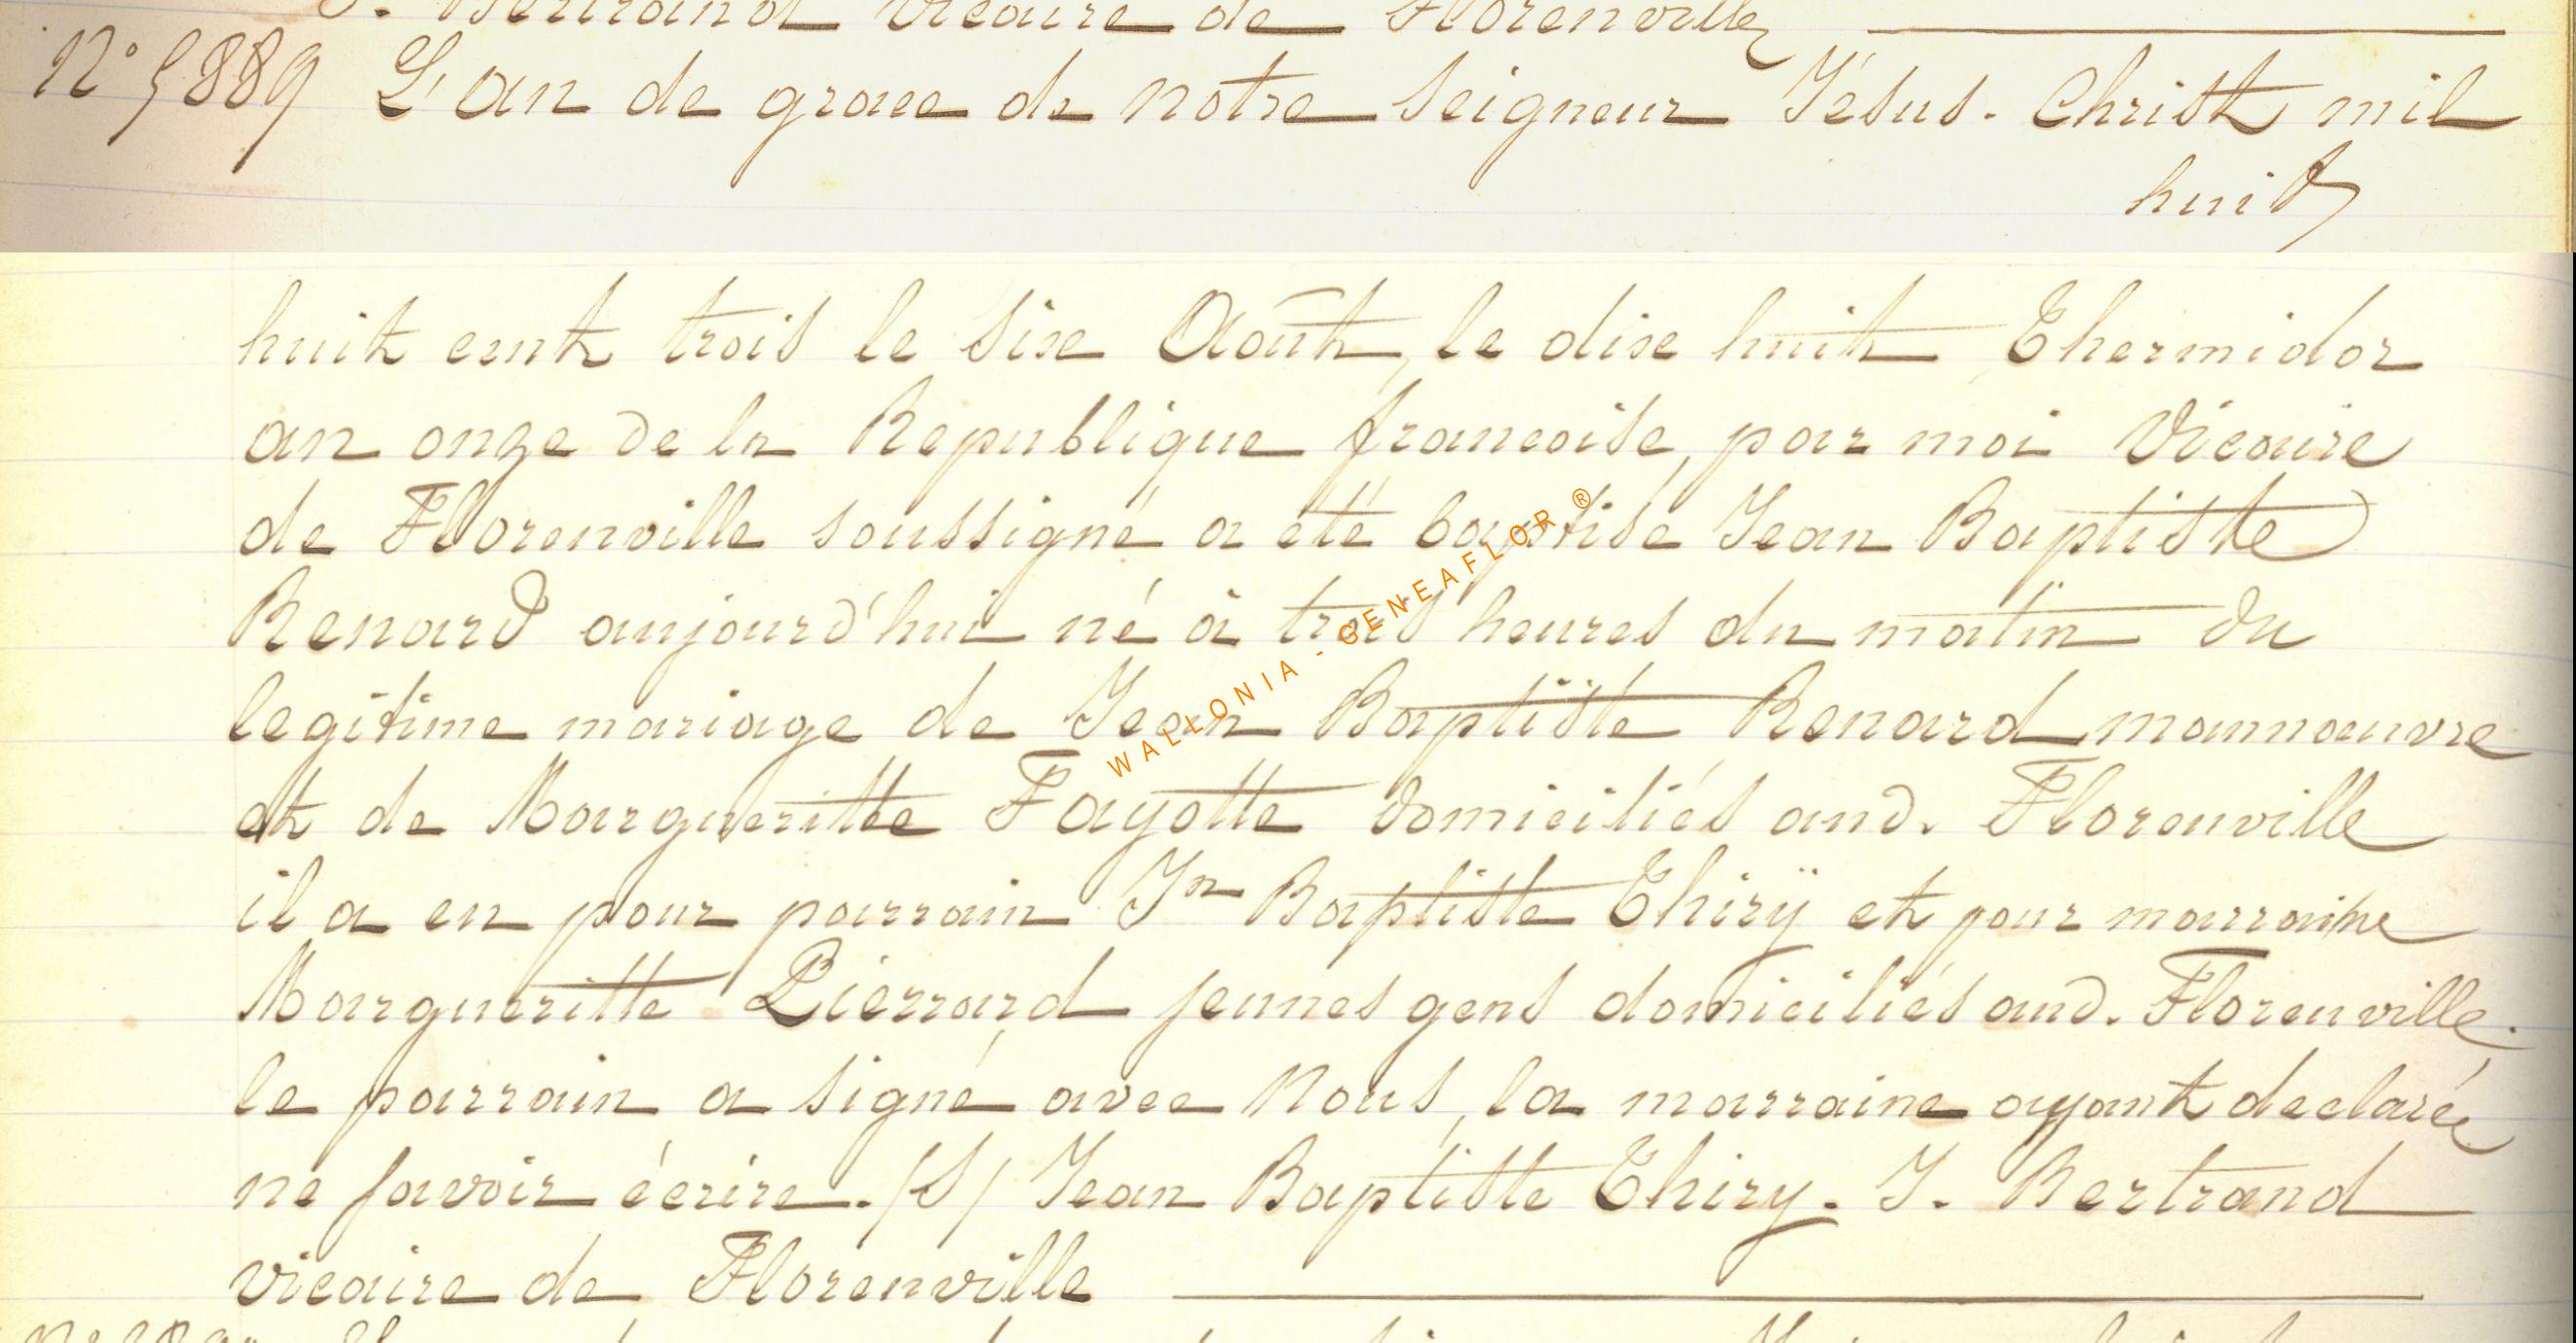 J. Bertrand vicaire de Florenville
N° 5889 L'an de grace de notre Seigneur Jésus-Christ mil
huit
huit cent trois le six Août, le dixe huit Thermidor
an onze de la Republique francoise, par moi Vicaire
de Florenville soussigné a été baptisé Jean Baptiste
Renard aujourd'hui né à trois heures du matin du
legitime mariage de Jean Baptiste Renard mannœuvre
et de Margueritte Fayotte domiciliés aud. Florenville
il a eu pour parrain Jn Baptiste Thirÿ et pour marraine
Margueritte Pierrard jeunes gens domiciliés aud. Florenville.
le parrain a signé avec Nous, la marraine ayant declaré
ne savoir écrire. /S/ Jean Baptiste Thiry. J. Bertrand
vicaire de Florenville
WALLONIA - GENEAFLOR ®